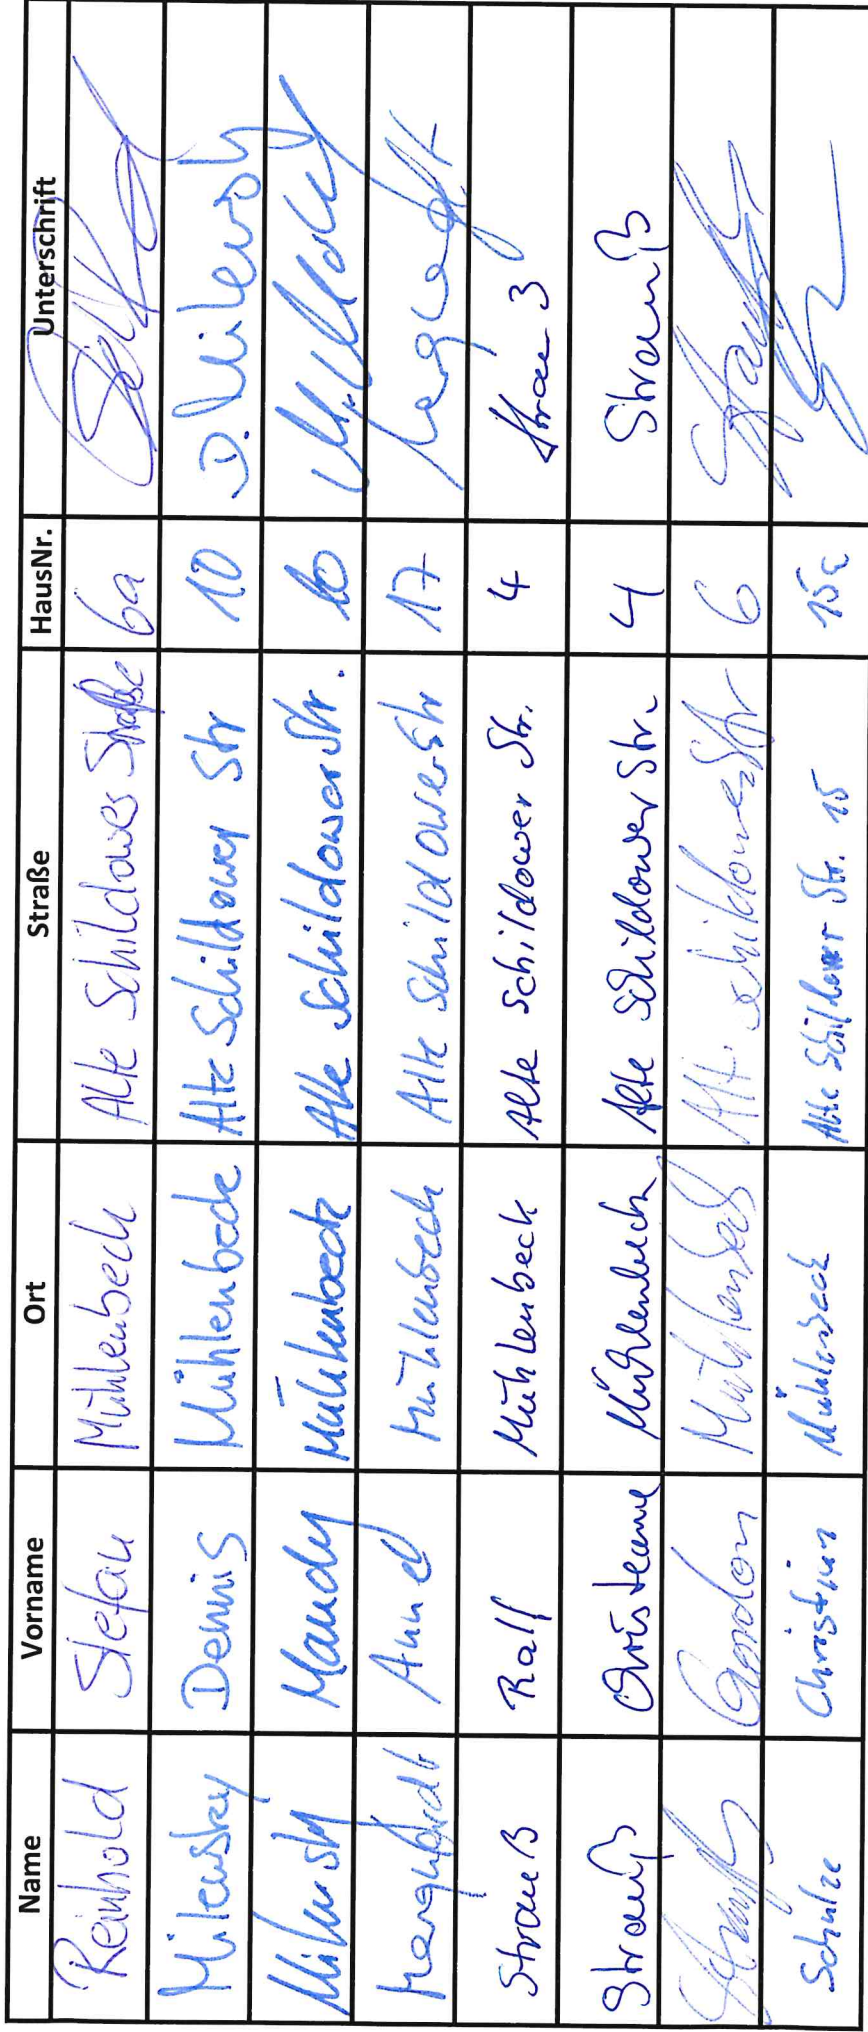 Name Vorname Ort Straße HausNr. Unterschrift
Reinhold Stefan Mühlenbeck Alte Schildower Straße 6a
Milewsky Dennis Mühlenbeck Alte Schildower Str 10 D. Milewsky
Milewsky Mandy Mühlenbeck Alte Schildower Str. 10
Anne Mühlenbeck Alte Schildower Str 17
Strauß Ralf Mühlenbeck Alte Schildower Str. 4 Strauß
Strauß Christeane Mühlenbeck Alte Schildower Str. 4 Strauß
Gordon Mühlenbeck Alt. Schildower Str 6
Schulze Christian Mühlenbeck Alte Schildower Str. 15 15c